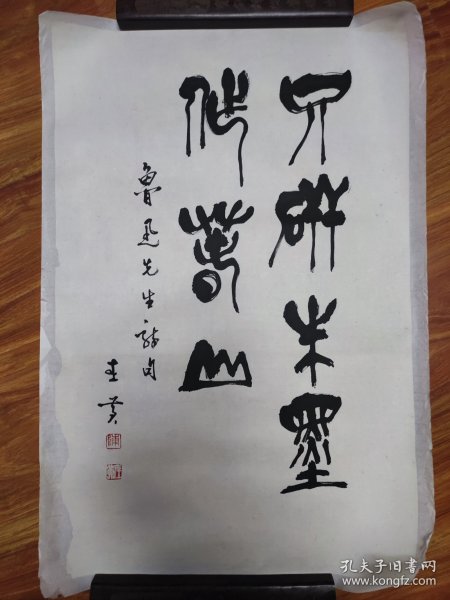 只研朱墨
作春山
魯迅先生詩句
孔夫子旧书网
www.kongfz.com